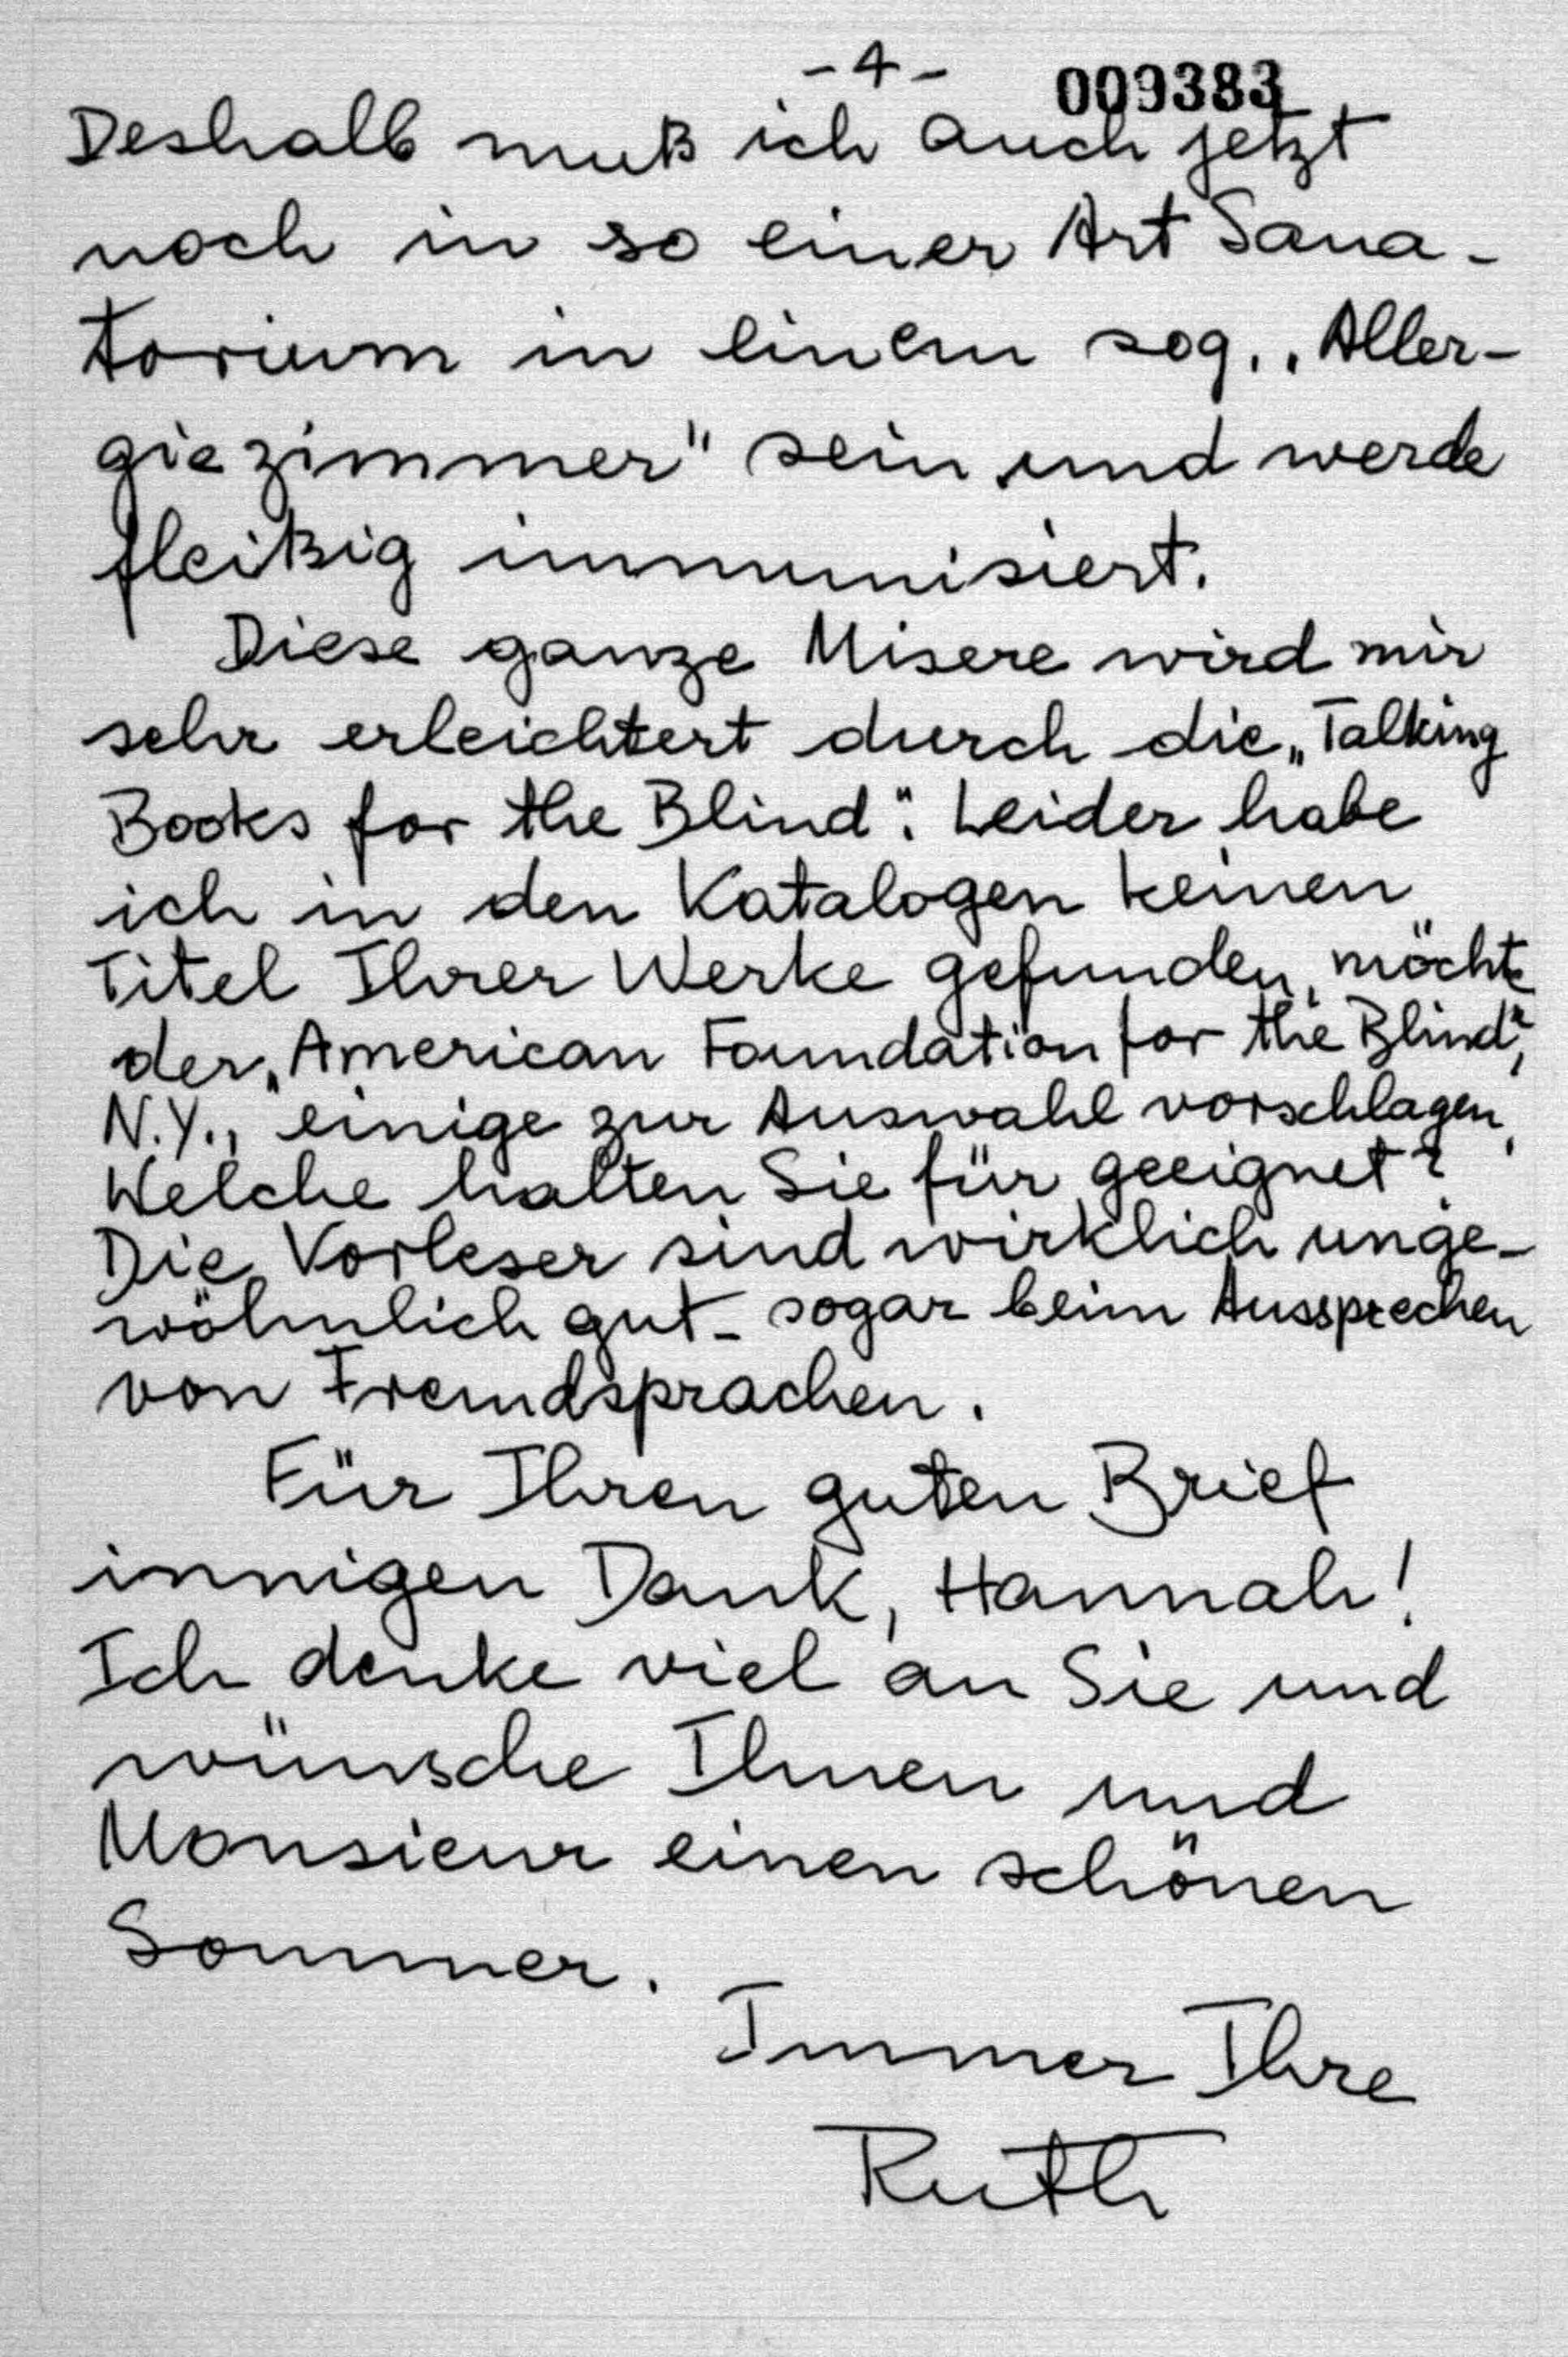 - 4 -
009383
Deshalb muß ich auch jetzt
noch in so einer Art Sana-
torium in einem sog. „Aller-
giezimmer" sein und werde
fleißig immunisiert.
Diese ganze Misere wird mir
sehr erleichtert durch die „Talking
Books for the Blind". Leider habe
ich in den Katalogen keinen
Titel Ihrer Werke gefunden, möchte
der „American Foundation for the Blind",
N.Y., einige zur Auswahl vorschlagen.
Welche halten Sie für geeignet?
Die Vorleser sind wirklich unge-
wöhnlich gut - sogar beim Aussprechen
von Fremdsprachen.
Für Ihren guten Brief
innigen Dank, Hannah!
Ich denke viel an Sie und
wünsche Ihnen und
Monsieur einen schönen
Sommer.
Immer Ihre
Ruth